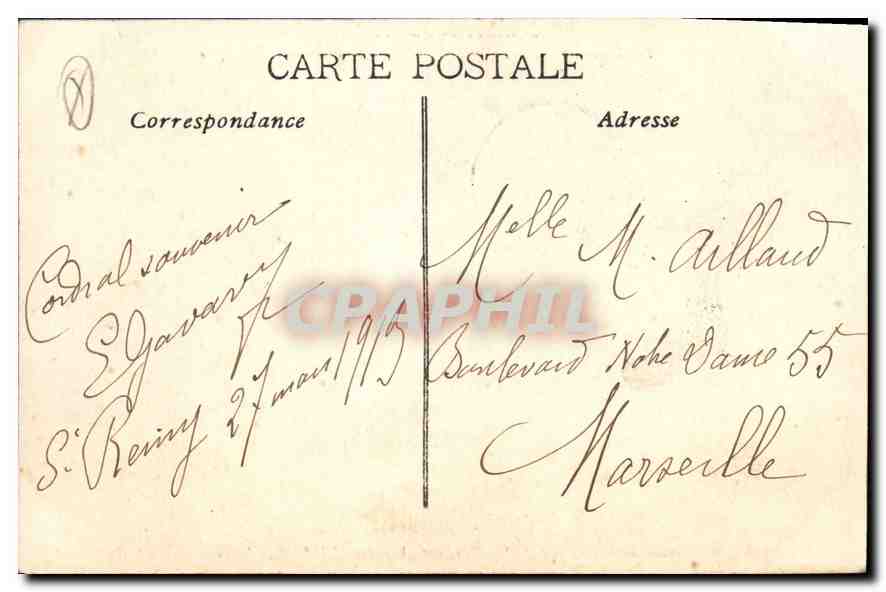 CARTE POSTALE
Correspondance
Adresse
Cordial souvenir
E Gavary
St Remy 27 mars 1913
Melle M. Aillaud
Boulevard Notre Dame 55
Marseille
CPAPHIL